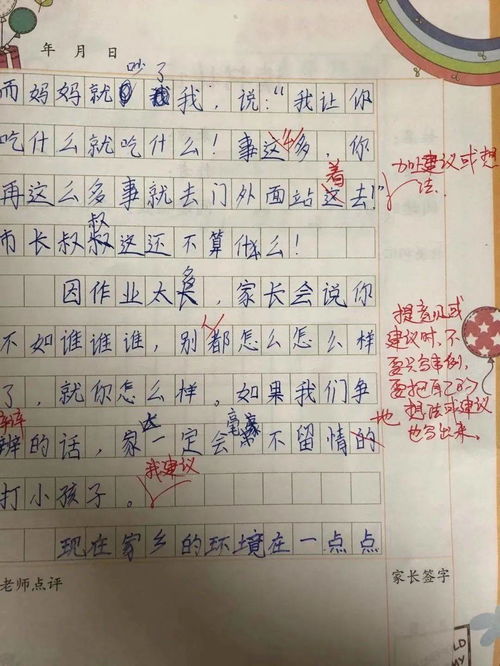 年 月 日
吵了
而妈妈就我，说："我让你
吃什么就吃什么！事这多，你
么
再这么多事就去门外面站这去！"
着
加上建议或想
法。
叔
市长叔叔这还不算什么！
多
因作业太，家长会说你
不如谁谁谁，别都怎么怎么样
人
了，就你怎么样。如果我们争
辩的话，家一定会不留情的
辩
长
毫
地
打小孩子。
我建议
现在家乡的环境在一点点
提意见或
建议时，不
要只写事例，
要把自己的
想法或建议
也写出来。
老师点评
家长签字